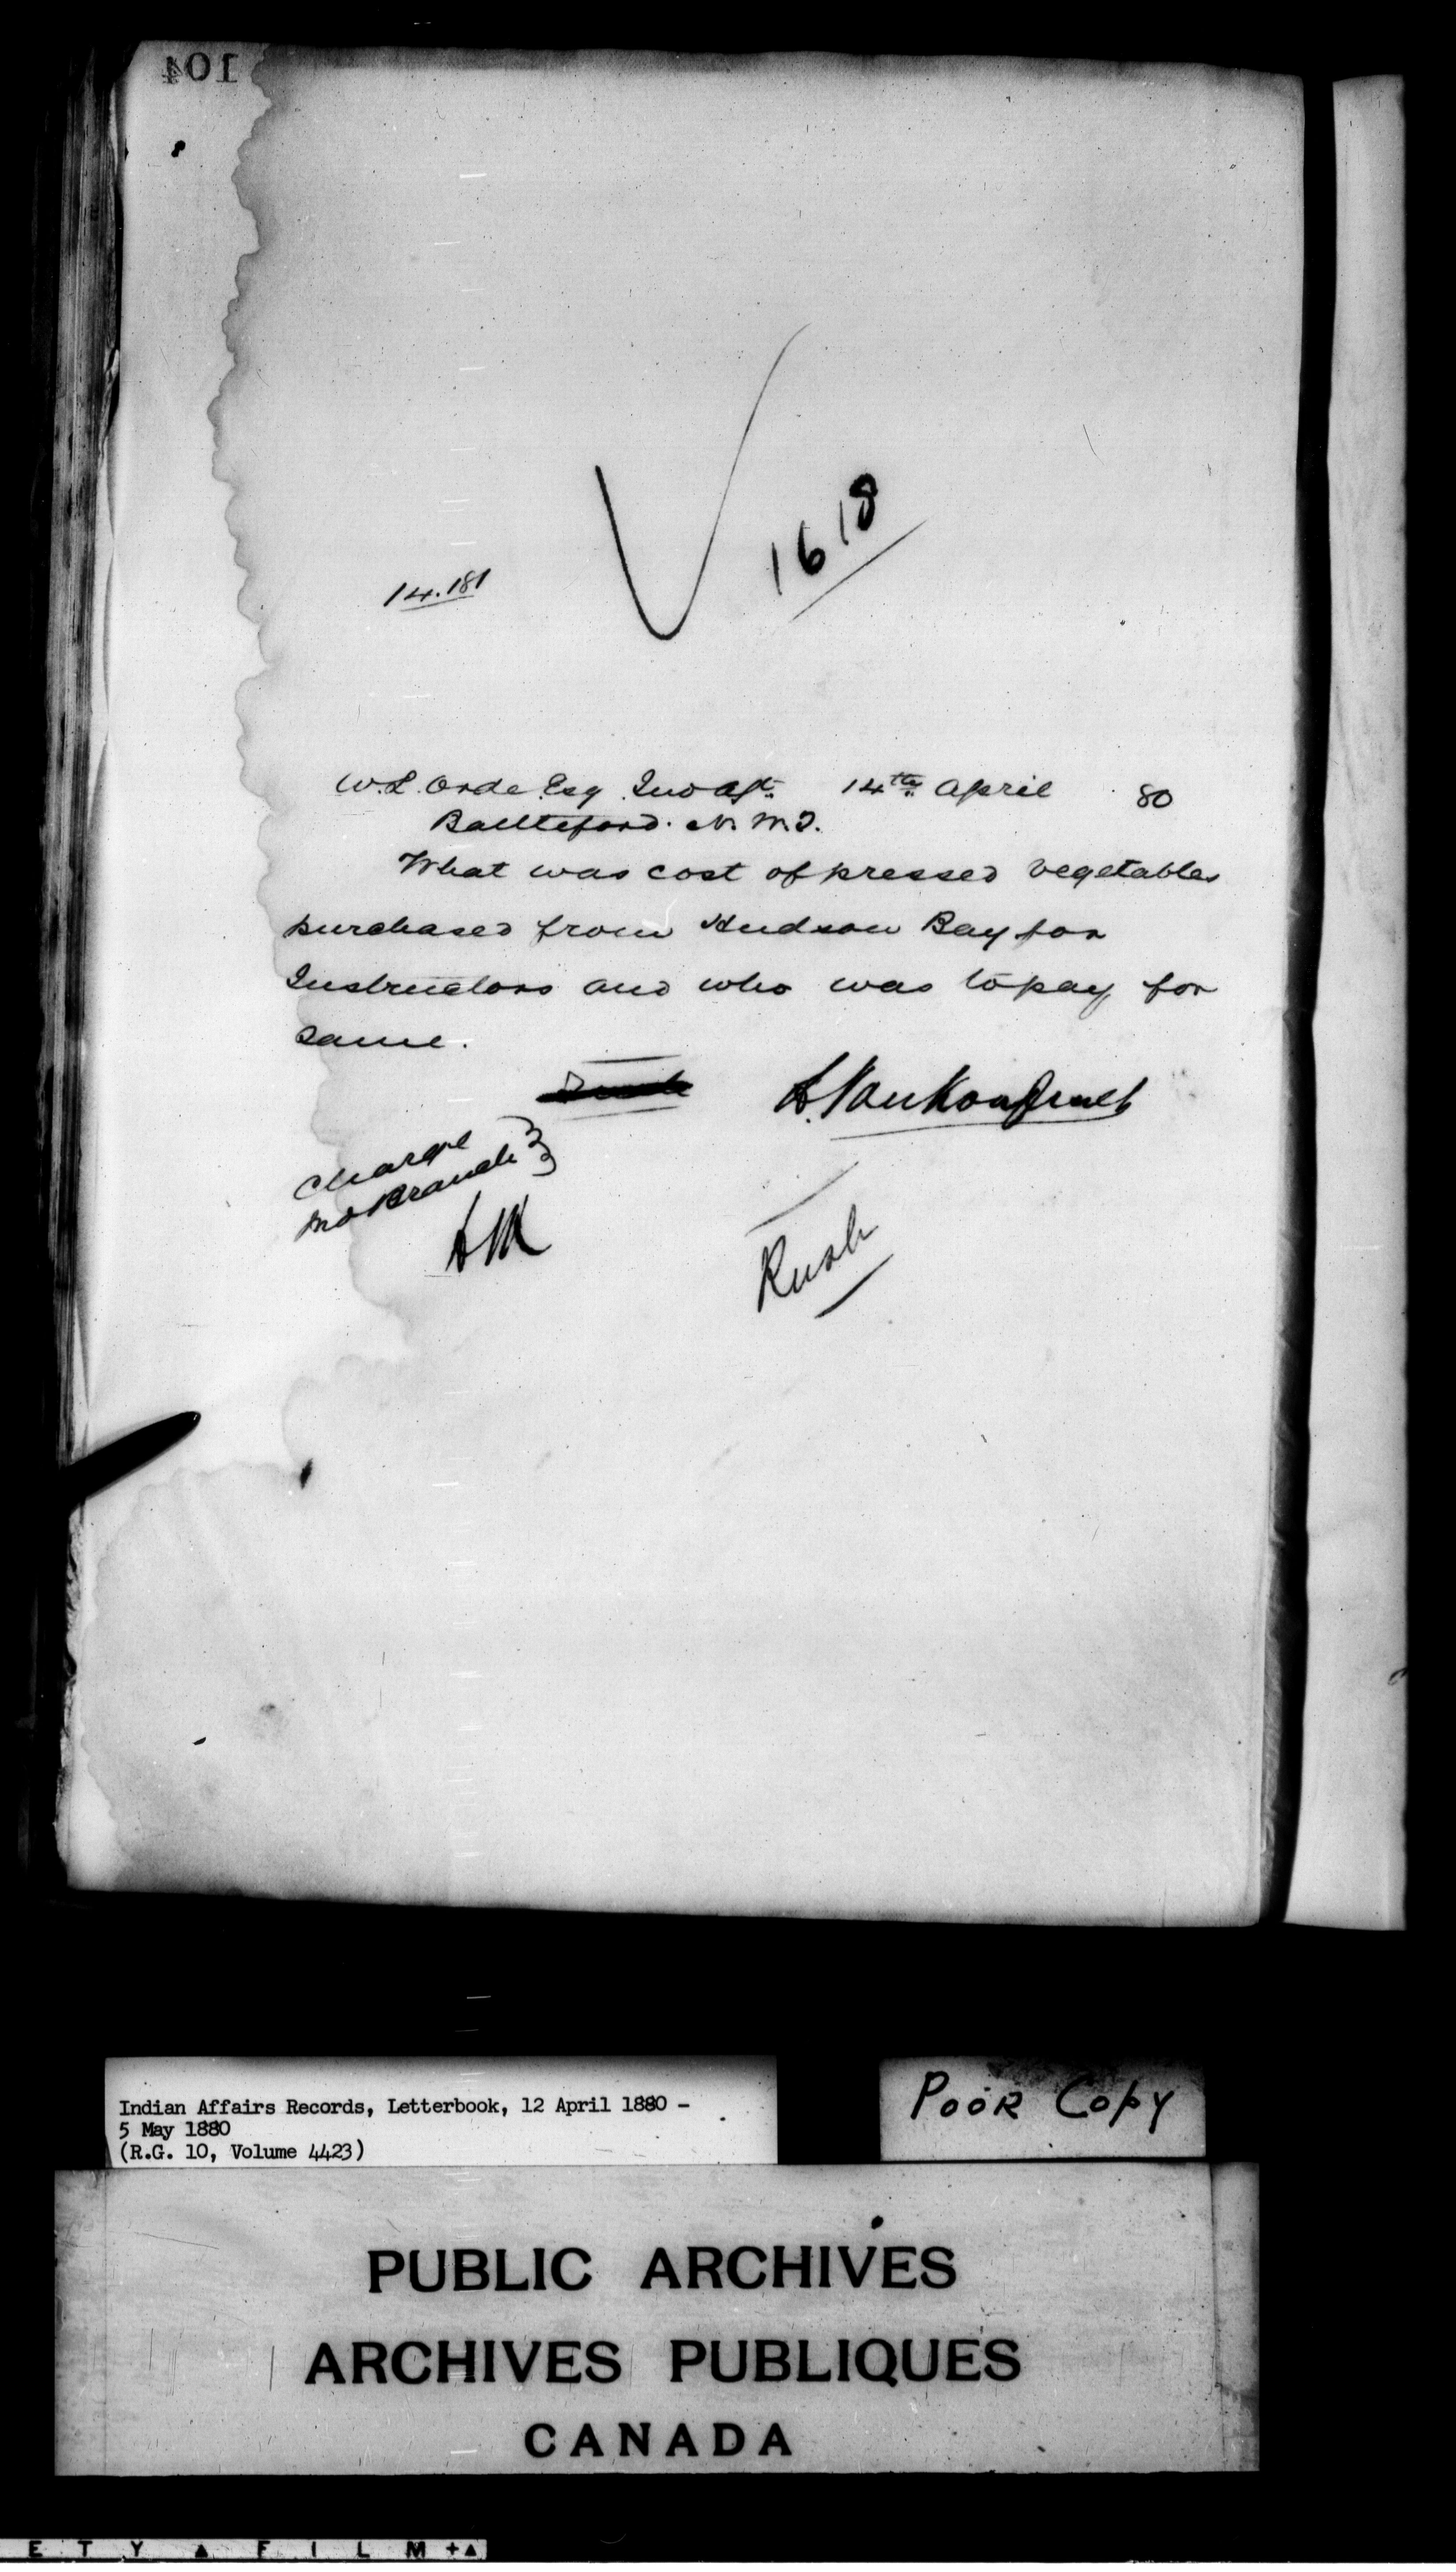 104
1618
14.181
W. L. Orde Esq Ind Agt. 14th April 80
Battleford. N.W.T.
What was cost of pressed vegetables
purchased from Hudson Bay for
Instructors and who was to pay for
same.
L. VanKoughnet
Charge
Ind Branch
LVK
Rush
Indian Affairs Records, Letterbook, 12 April 1880 -
5 May 1880
(R.G. 10, Volume 4423)
POOR COPY
PUBLIC ARCHIVES
ARCHIVES PUBLIQUES
CANADA
E T Y ▲ F I L M +▲